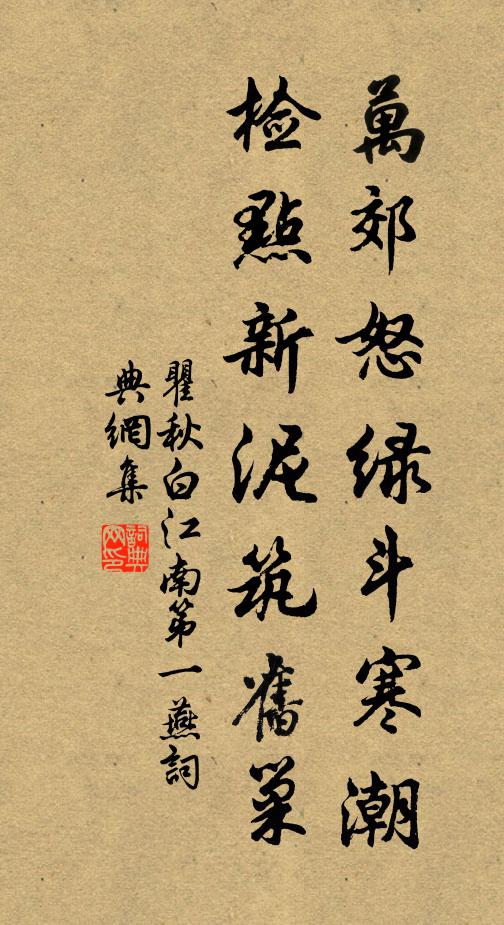 萬郊怒绿斗寒潮
检點新泥筑舊巢
瞿秋白江南第一燕詞
典網集
詞典
网印